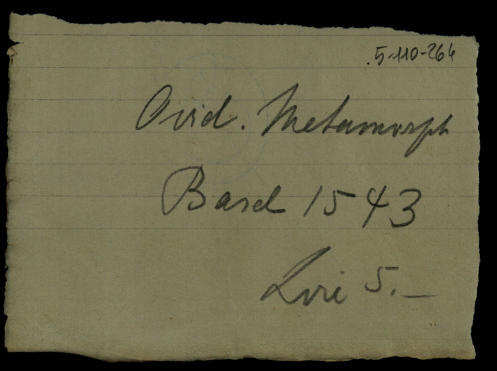 .5-110-264
Ovid. Metamorph
Basel 1543
Lire 5.—